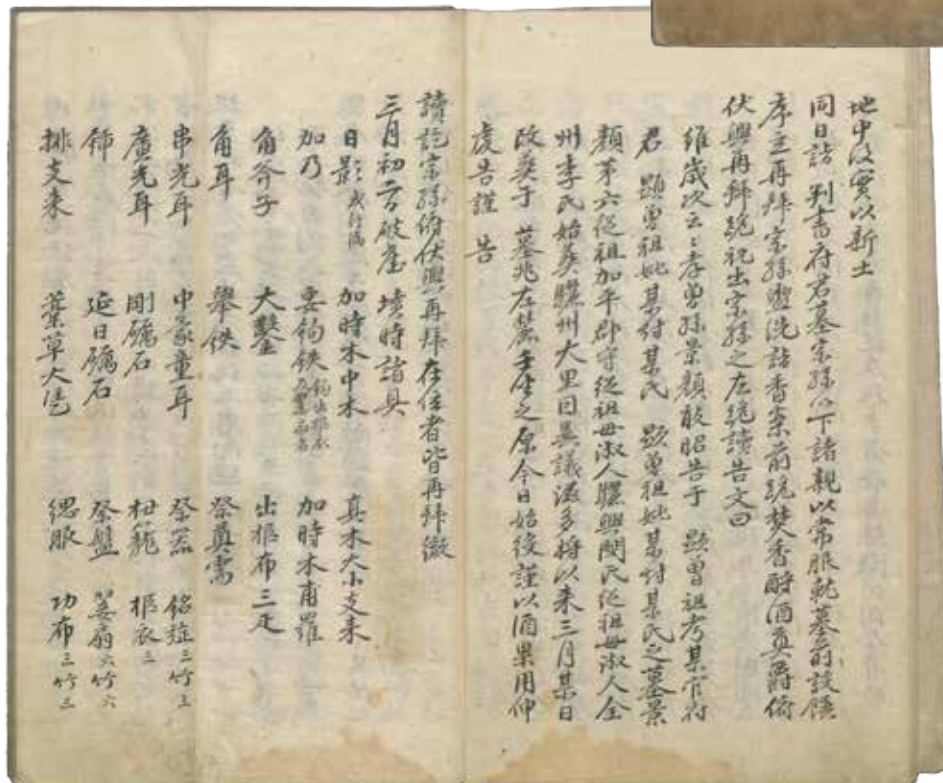 地中後實以新土
同日詣 判書府君墓宗孫以下諸親以常服就墓前設饌
序立再拜宗孫盥洗詣香案前跪焚香酹酒奠爵俯
伏興再拜跪祝出宗孫之左跪讀告文曰
維歲次云云孝曾孫景顏敢昭告于 顯曾祖考某官府
君 顯曾祖妣某封某氏 顯曾祖妣某封某氏之墓景
顏第六從祖加平郡守從祖母淑人驪興閔氏從祖母淑人全
州李氏始葬驪州大里因異議滋多將以來三月某日
改葬于 墓兆左麓壬坐之原今日始役謹以酒果用伸
虔告謹 告
讀訖宗孫俯伏興再拜在位者皆再拜徹
三月初 破舊墳時諸具
日影 加時木中木 真木大小支來
加乃 要鉤鉄 加時木甫羅
角斧子 大鑿 出柩布三疋
角耳 擧鉄 祭奠需
串光耳 中家童耳 祭器 銘旌三竹三
廣光耳 剛礪石 杻籠 柩衣三
鍤 延日礪石 祭盤 翣扇六竹六
排支來 藁草大 緦服 功布三竹三